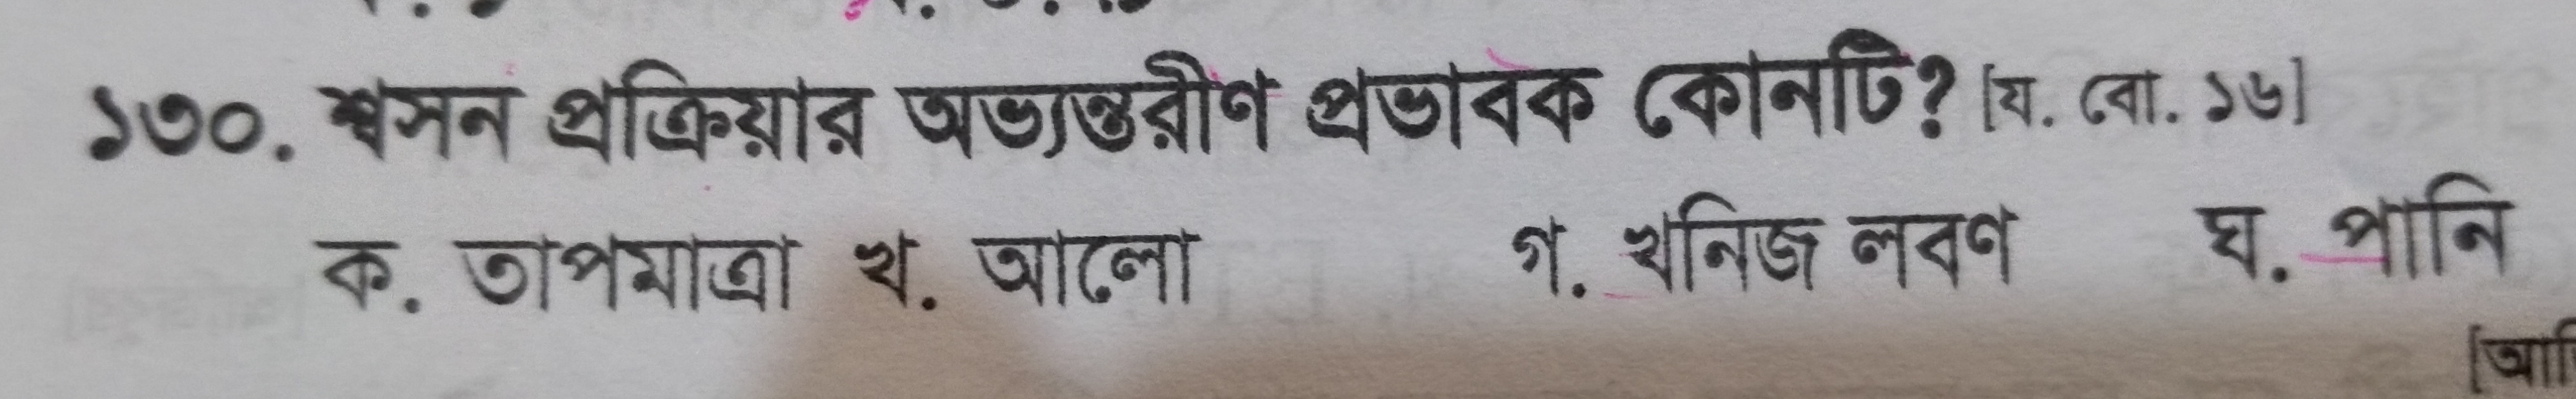 ১৩০. শ্বসন প্রক্রিয়ার অভ্যন্তরীণ প্রভাবক কোনটি? [য. বো. ১৬]
ক. তাপমাত্রা খ. আলো গ. খনিজ লবণ ঘ. পানি